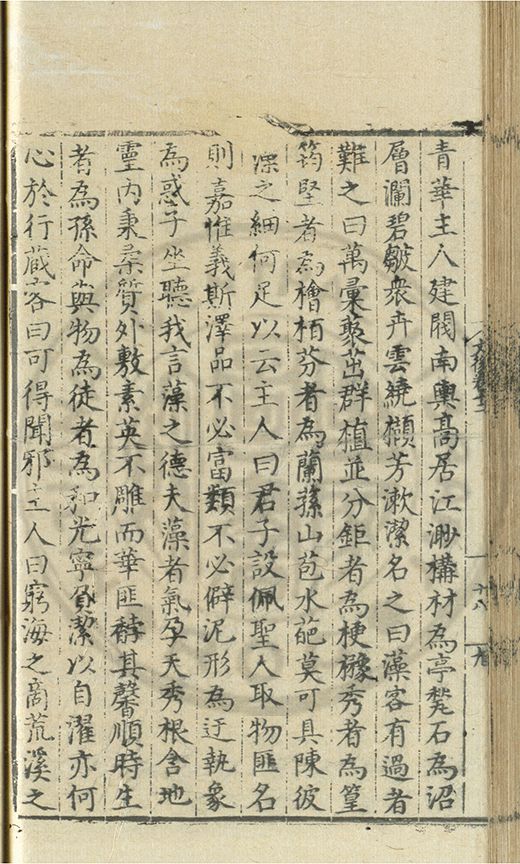 青華主人建閥南輿高居江渺構材為亭甃石為沼
層瀾碧皺衆卉雲繞擷芳漱潔名之曰藻客有過者
難之曰萬彙聚茁群植並分鉅者為梗橡秀者為篁
筠堅者為檜栢芬者為蘭蓀山苞水葩莫可具陳彼
深之細何足以云主人曰君子設佩聖人取物匪名
則嘉惟義斯澤品不必富類不必僻泥形為迂執象
為惑子坐聽我言藻之德夫藻者氣孕天秀根含地
靈内秉柔質外敷素英不雕而華匪其馨順時生
者為孫命與物為徒者為和光寧負潔以自濯亦何
心於行藏客曰可得聞邪主人曰窮海之裔荒溪之
十八